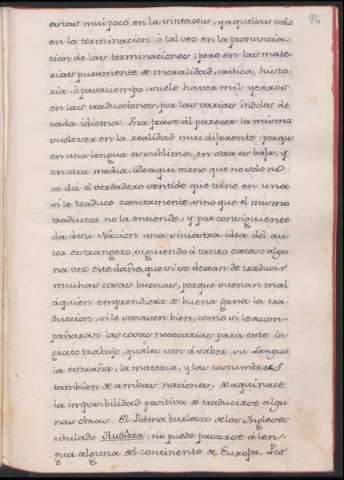 94
estas mui poco en la sintaxis, y aquellas solo
en la terminacion, ó tal vez en la pronuncia
cion de las terminaciones; pero en las mate-
rias puramente de moralidad, critica, histo-
ria, ó pasatiempo, suele haver mil yerros
en las traducciones, por las varias indoles de
cada idioma. Una frase al parecer la misma
suele ser en la realidad mui diferente, porque
en una lengua es sublime, en otra es baja, y
en otra media. De aqui viene que no solo no
se dá el verdadero sentido que tiene en una
si le traduce exactamente, sino que el mismo
traductor no la entiende, y por consiguiente
dá á su Nacion una siniestra idea del au-
tor extrangero, siguiendo á tanto exceso algu-
na vez este daño, que si se dexan de traducir
muchas cosas buenas, porque suenan mal
á quien emprendiera de buena gana la tra-
duccion, si le sonasen bien, como si le acom-
pañaran las cosas necesarias para este in-
grato trabajo, quales son á saber, su Lengua
la extraña, la materia, y las costumbres
tambien de ambas naciones, de aqui nace
la imposibilidad positiva de traducirse algu-
nas obras. El Poema burlesco de los Ingleses
titulado Hudibra, no puede pasarse á len-
gua alguna del continente de Europa. Por